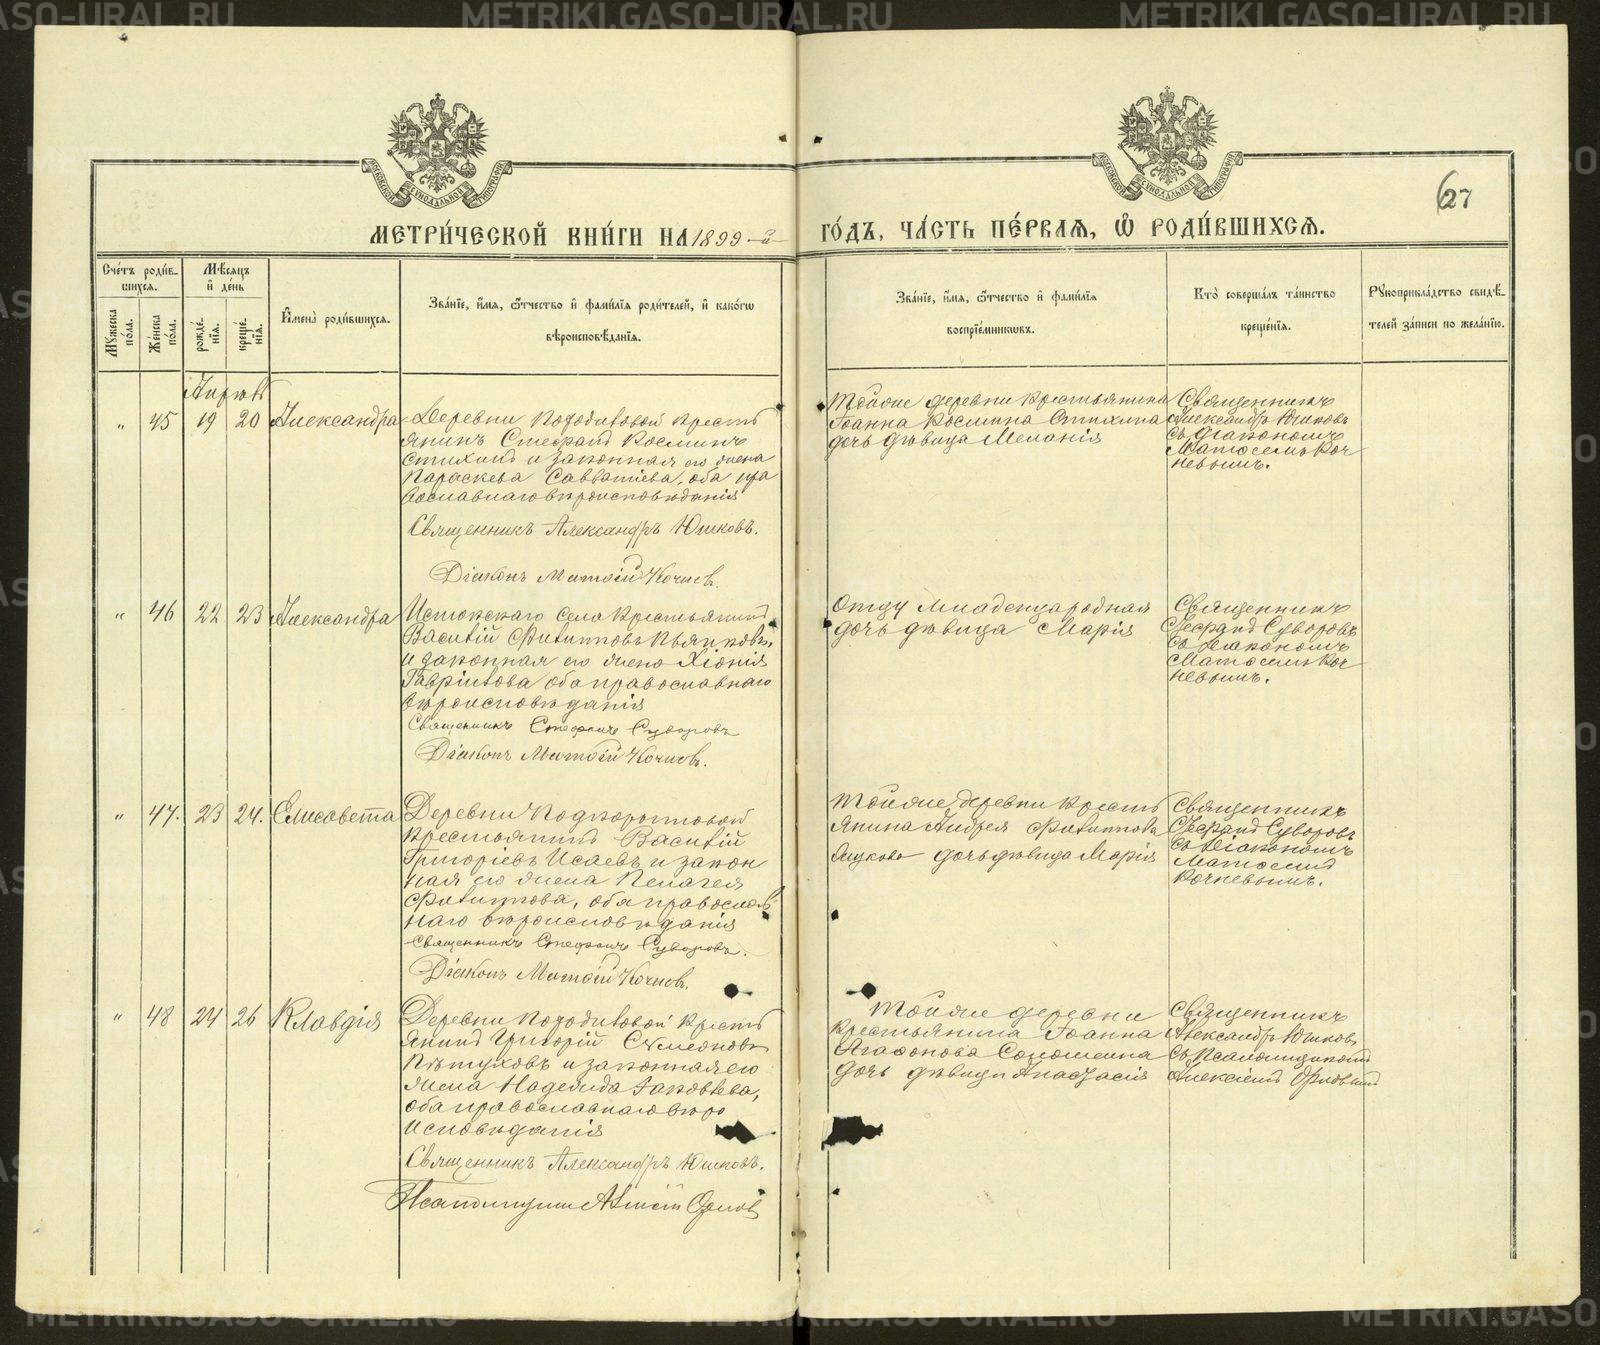 METRIKI.GASO-URAL.RU
МОСКОВСКОЙ СѴНОДАЛЬНОЙ ТИПОГРАФІИ
МОСКОВСКОЙ СѴНОДАЛЬНОЙ ТИПОГРАФІИ
27
МЕТРИ́ЧЕСКОЙ КНИ́ГИ НА 1899-й
ГО́ДЪ, ЧА́СТЬ ПЕ́РВАЯ, Ѡ РОДИ́ВШИХСЯ.
Сче́тъ роди́в-
шихся.
Му́жеска по́ла.
Же́нска по́ла.
Мѣ́сяцъ
и҆ де́нь
рожде́-
нія.
креще́-
нія.
И҆мена̀ роди́вшихся.
Зва́ніе, и҆́мя, ѻ҆́тчество и҆ фами́лія роди́телей, и҆ како́гѡ
вѣроисповѣ́данія.
Зва́ніе, и҆́мя, ѻ҆́тчество и҆ фами́лія
воспріе́мникѡвъ.
Кто̀ соверша́лъ та́инство
креще́нія.
Рꙋкоприкла́дство свидѣ́-
телей за́писи по жела́нію.
Апрѣль
" 45 19 20 Александра
Деревни крестья
янинъ Стефанъ Косминъ
Стихинъ и законная его жена
Параскева Савватіева, оба пра
вославнаго вѣроисповѣданія
Священникъ Александръ Юшковъ.
Діаконъ Матѳій Кочнев.
Тойже деревни крестьянина
Іоанна Космина Стихина
дочь дѣвица Меланія
Священникъ
Александръ Юшковъ
съ діакономъ
Матѳеемъ Коч
невымъ.
" 46 22 23 Александра
Истокскаго села крестьянинъ
Василій Филипповъ Пьянковъ,
и законная его жена Хіонія
Гавріилова оба православнаго
вѣроисповѣданія
Священникъ Стефанъ Суворовъ
Діаконъ Матѳій Кочнев.
Отцу младенца родная
дочь дѣвица Марія
Священникъ
Стефанъ Суворовъ
съ діакономъ
Матѳеемъ Коч
невымъ.
" 47. 23 24. Елисавета
Деревни
крестьянинъ Василій
Григорієвъ Исаевъ и закон
ная его жена Пелагея
Филиппова, оба православ
наго вѣроисповѣданія
Священникъ Стефанъ Суворовъ.
Діаконъ Матѳій Кочнев.
Тойже деревни кресть
янина Андрея Филиппова
дочь дѣвица Марія
Священникъ
Стефанъ Суворовъ
съ діакономъ
Матѳеемъ
Кочневымъ.
" 48 24 26 Клавдія
Деревни кресть
янинъ Григорій Сѵмеоновъ
Пѣтуховъ и законная его
жена Надежда Іаковлева,
оба православнаго вѣро
исповѣданія
Священникъ Александръ Юшковъ.
Псаломщикъ Алексій Орлов
Тойже деревни
крестьянина Іоанна
Агафонова
дочь дѣвица Анастасія
Священникъ
Александръ Юшковъ
съ псаломщикомъ
Алексіемъ Орловымъ